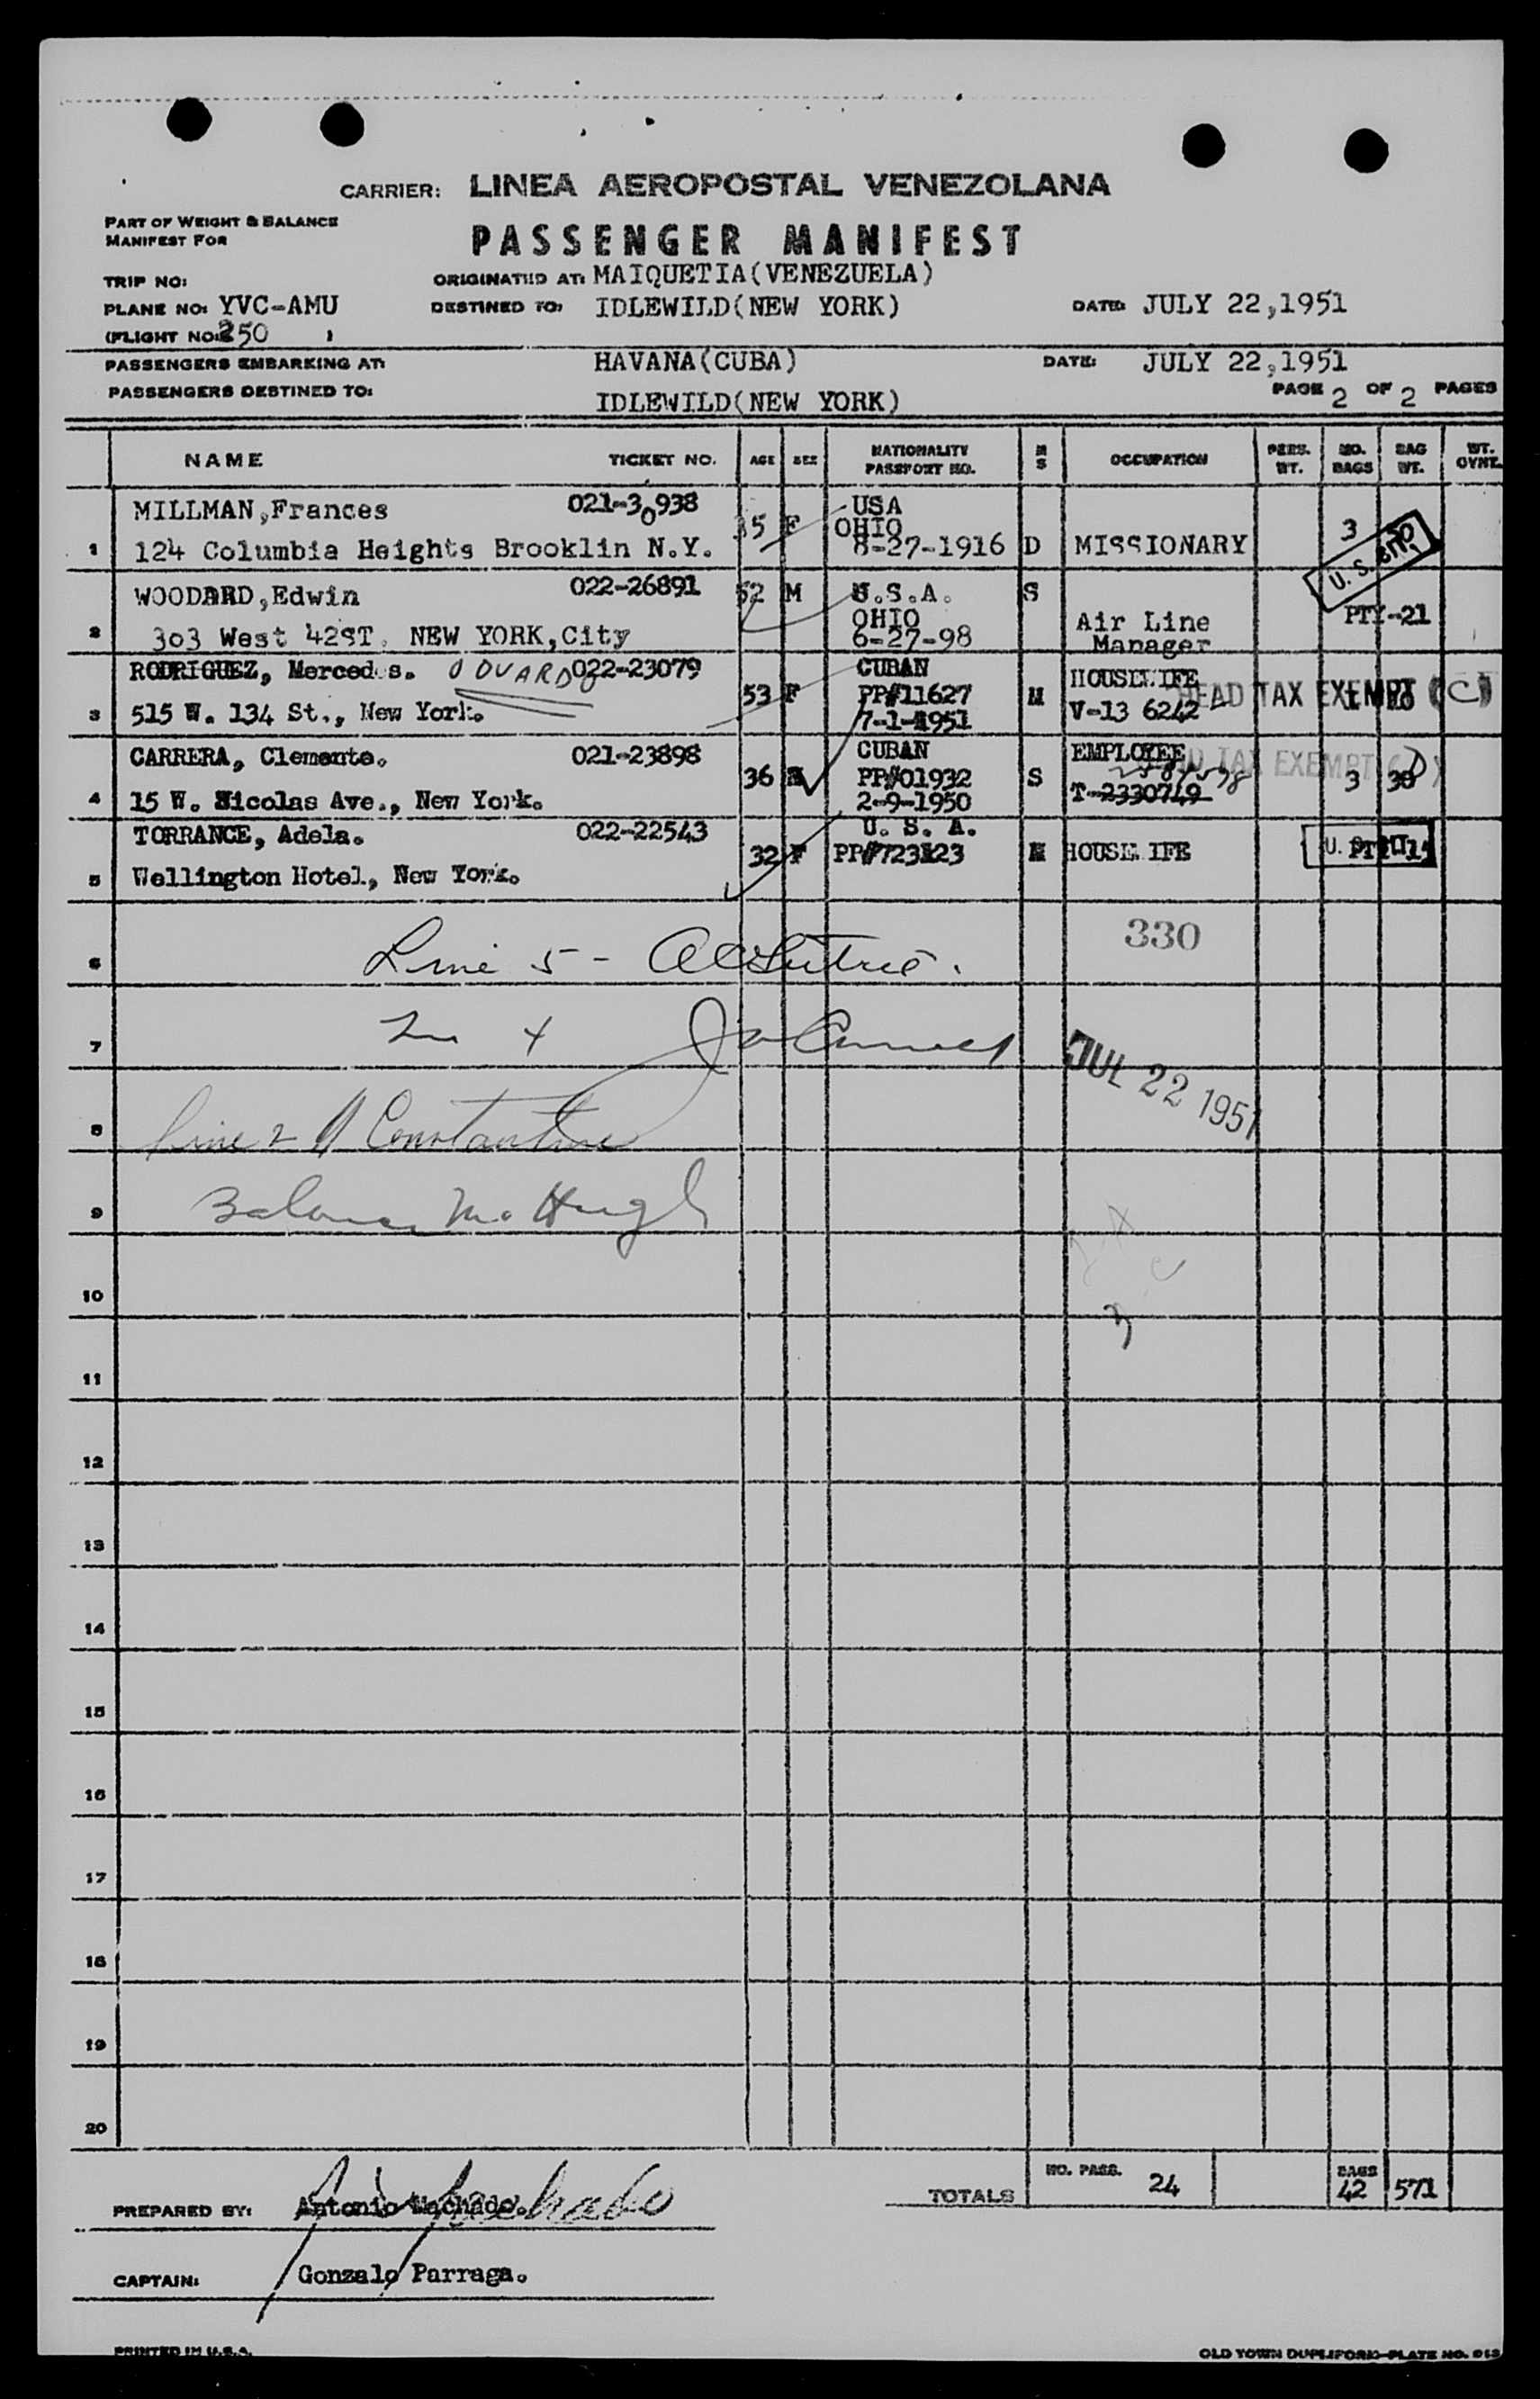 CARRIER: LINEA AEROPOSTAL VENEZOLANA
PART OF WEIGHT & BALANCE
MANIFEST FOR
PASSENGER MANIFEST
TRIP NO:
ORIGINATED AT: MAIQUETIA(VENEZUELA)
PLANE NO: YVC-AMU
DESTINED TO: IDLEWILD(NEW YORK)
DATE: JULY 22,1951
(FLIGHT NO: 250 )
PASSENGERS EMBARKING AT: HAVANA(CUBA) DATE: JULY 22,1951
PASSENGERS DESTINED TO: IDLEWILD(NEW YORK)
PAGE 2 OF 2 PAGES
NAME TICKET NO. AGE SEX NATIONALITY PASSPORT NO. M S OCCUPATION PERS. WT. NO. BAGS BAG WT. WT. OVNT.
MILLMAN,Frances 021-30938 35 F USA
OHIO
1 124 Columbia Heights Brooklin N.Y. 8-27-1916 D MISSIONARY 3
U. S. CIT
WOODARD,Edwin 022-26891 52 M U.S.A. S
OHIO Air Line PTY-21
2 303 West 42ST. NEW YORK,City 6-27-98 Manager
RODRIGUEZ, Mercedes. 022-23079 CUBAN HOUSEWIFE
53 F PP#11627 M HEAD TAX EXEMPT (C)
3 515 W. 134 St., New York. 7-1-1951 V-13 6242
CARRERA, Clemente. 021-23898 CUBAN EMPLOYEE
36 PP#01932 S HEAD TAX EXEMPT (D) 3 30
4 15 W. Nicolas Ave., New York. 2-9-1950 T-2330749
TORRANCE, Adela. 022-22543 U. S. A.
32 F PP#723123 M HOUSEWIFE U.
5 Wellington Hotel, New York.
330
6 Line 5 -
7
JUL 22 1951
8 Line 2 Constantine
9 Balance McHugh
10
11
12
13
14
15
16
17
18
19
20
TOTALS NO. PASS. 24 BAGS 42 571
PREPARED BY: Antonio Machado.
CAPTAIN: Gonzalo Parraga.
PRINTED IN U.S.A.
OLD TOWN DUPLIFORM-PLATE NO. 913